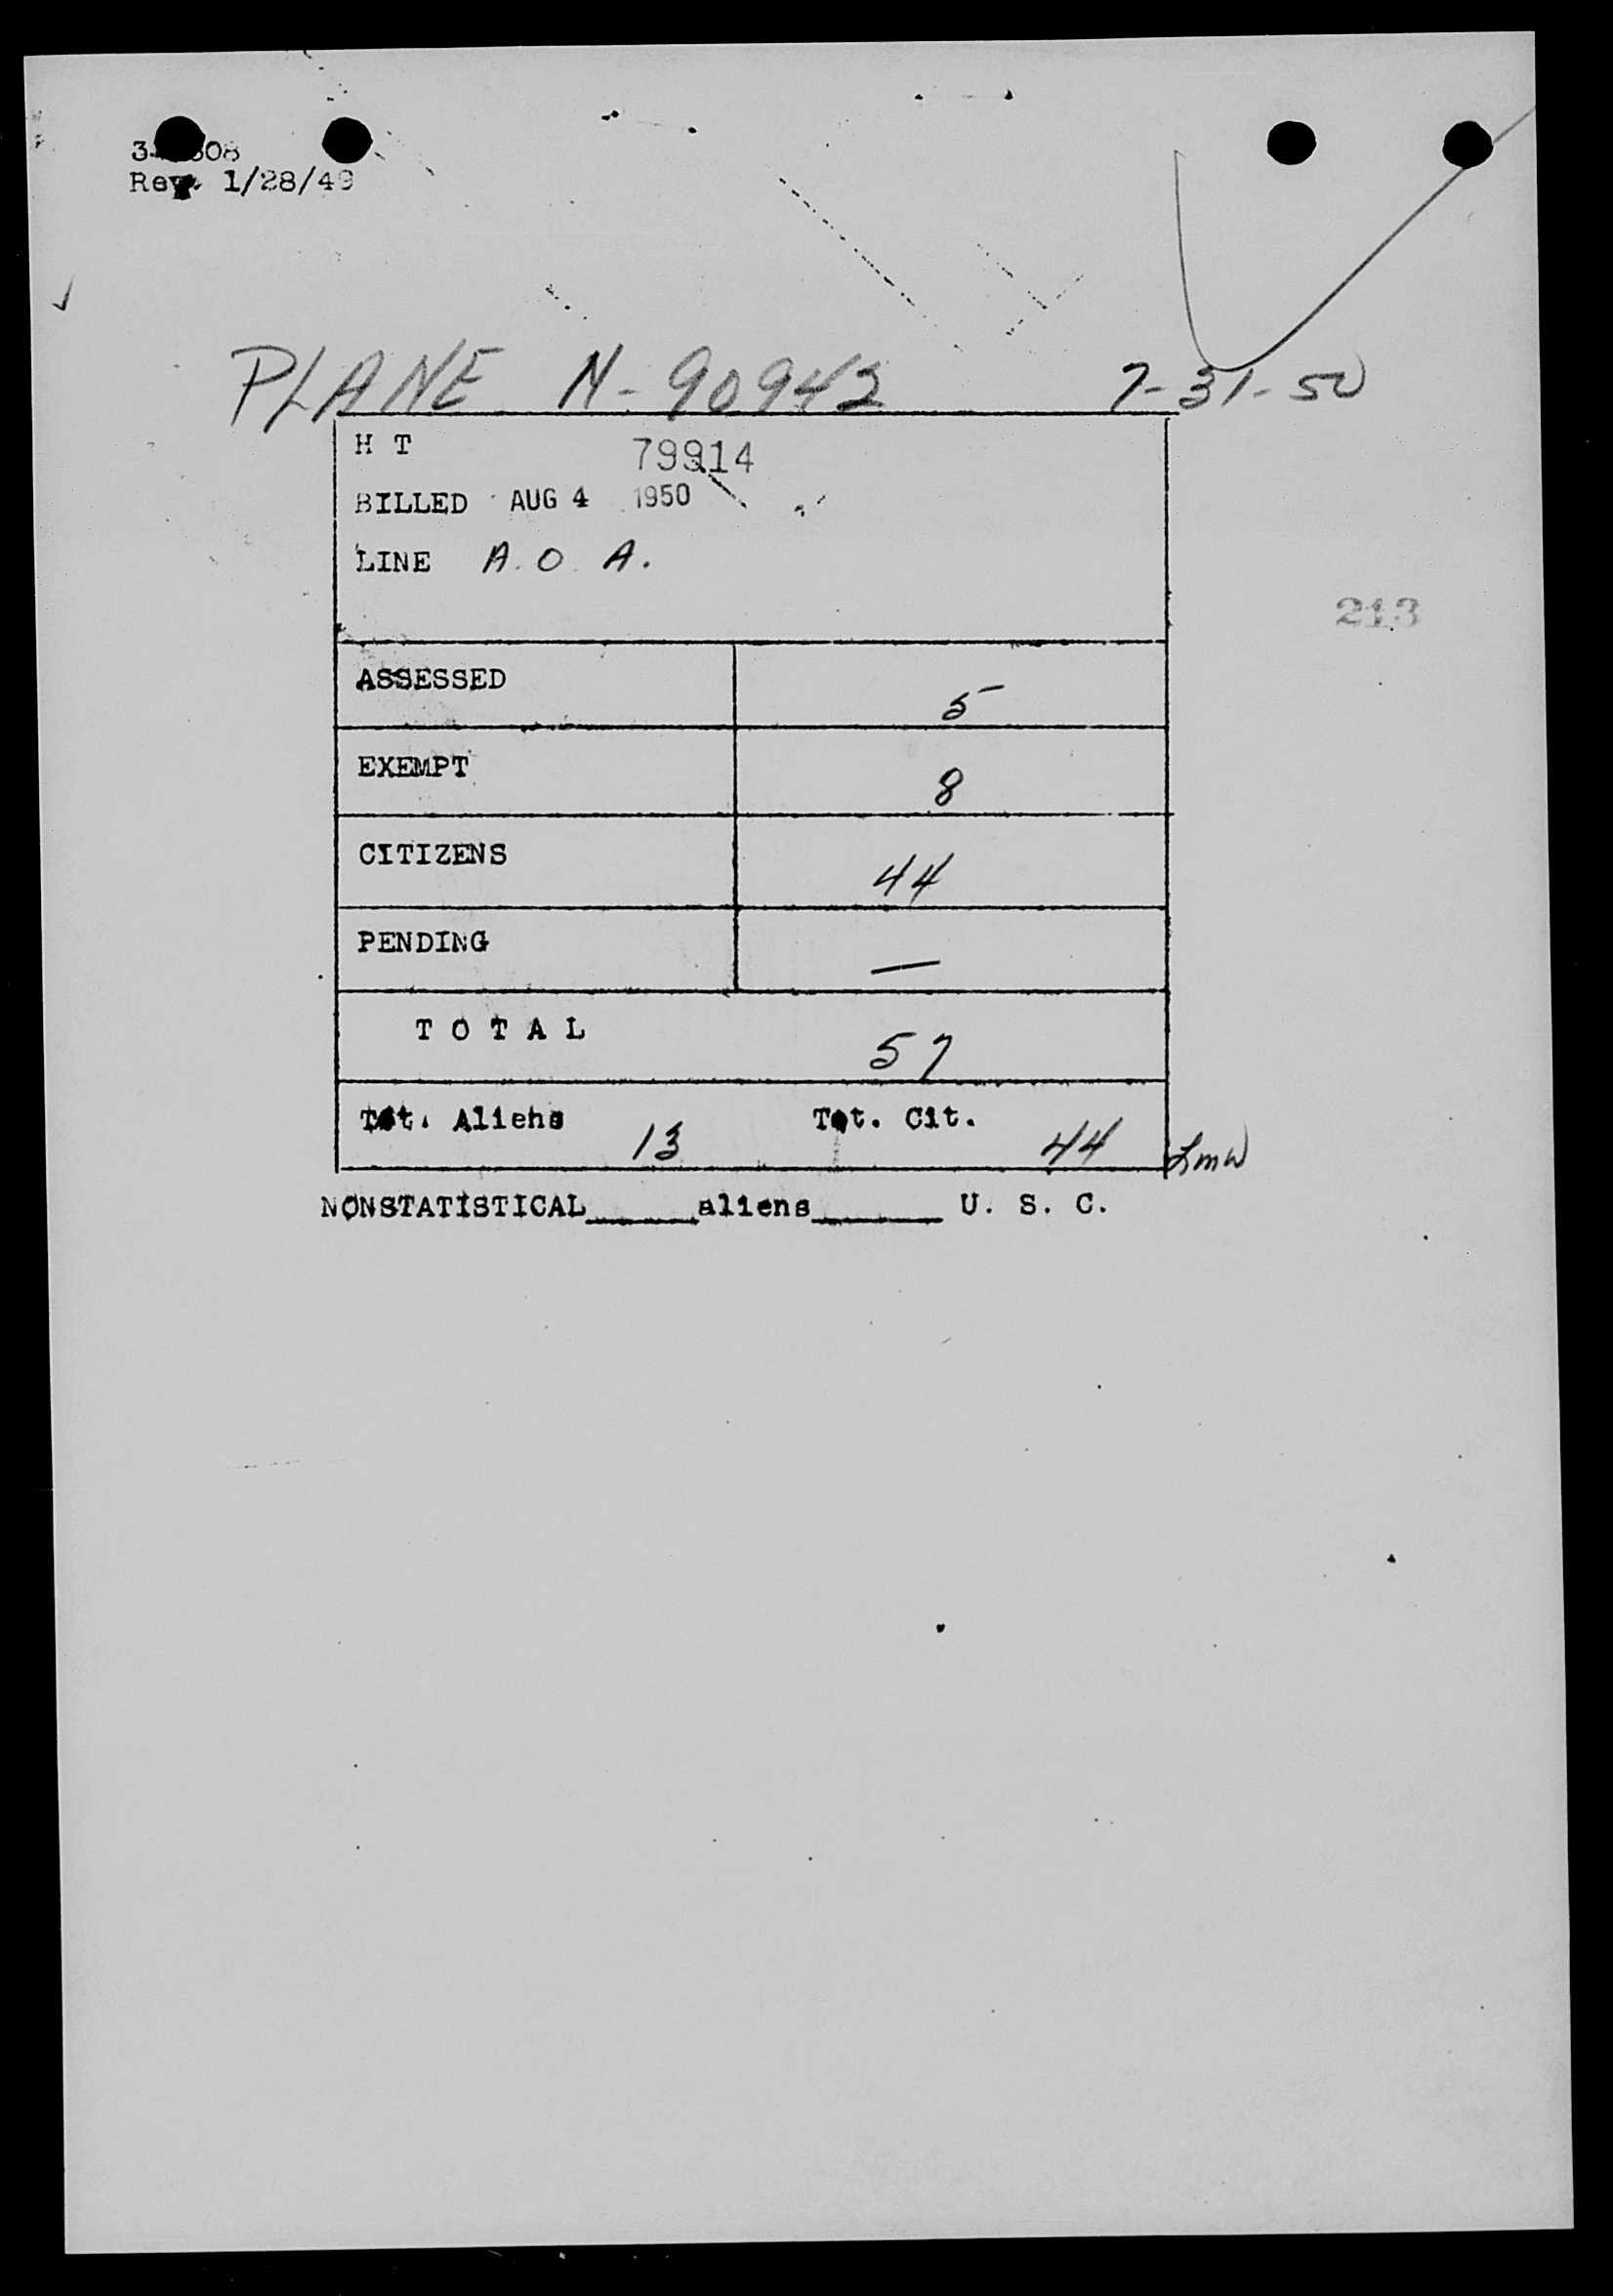 Rev. 1/28/49
PLANE N-90942 7-31-50
H T 79914
BILLED AUG 4 1950
LINE A. O. A.
213
ASSESSED 5
EXEMPT 8
CITIZENS 44
PENDING —
TOTAL 57
Tot. Aliens 13 Tot. Cit. 44 Lmw
NONSTATISTICAL______aliens_______ U. S. C.